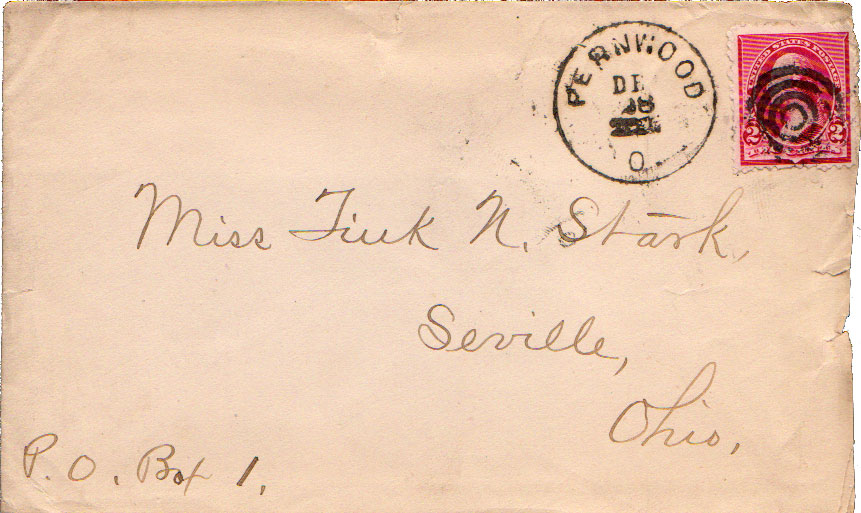 PERNWOOD
DE
28
O
UNITED STATES POSTAGE
2 2
Miss Tink N. Stark,
Seville,
Ohio,
P. O. Box 1.